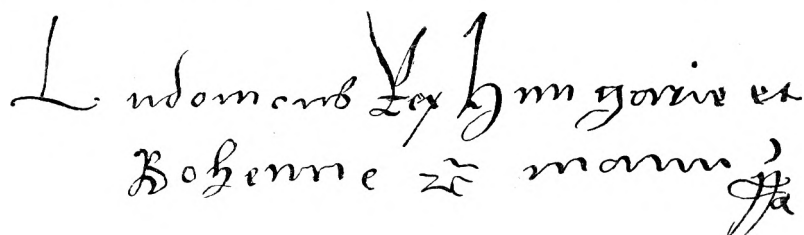 Ludovicus Rex Hungarie et
Bohemie zc manu ppa